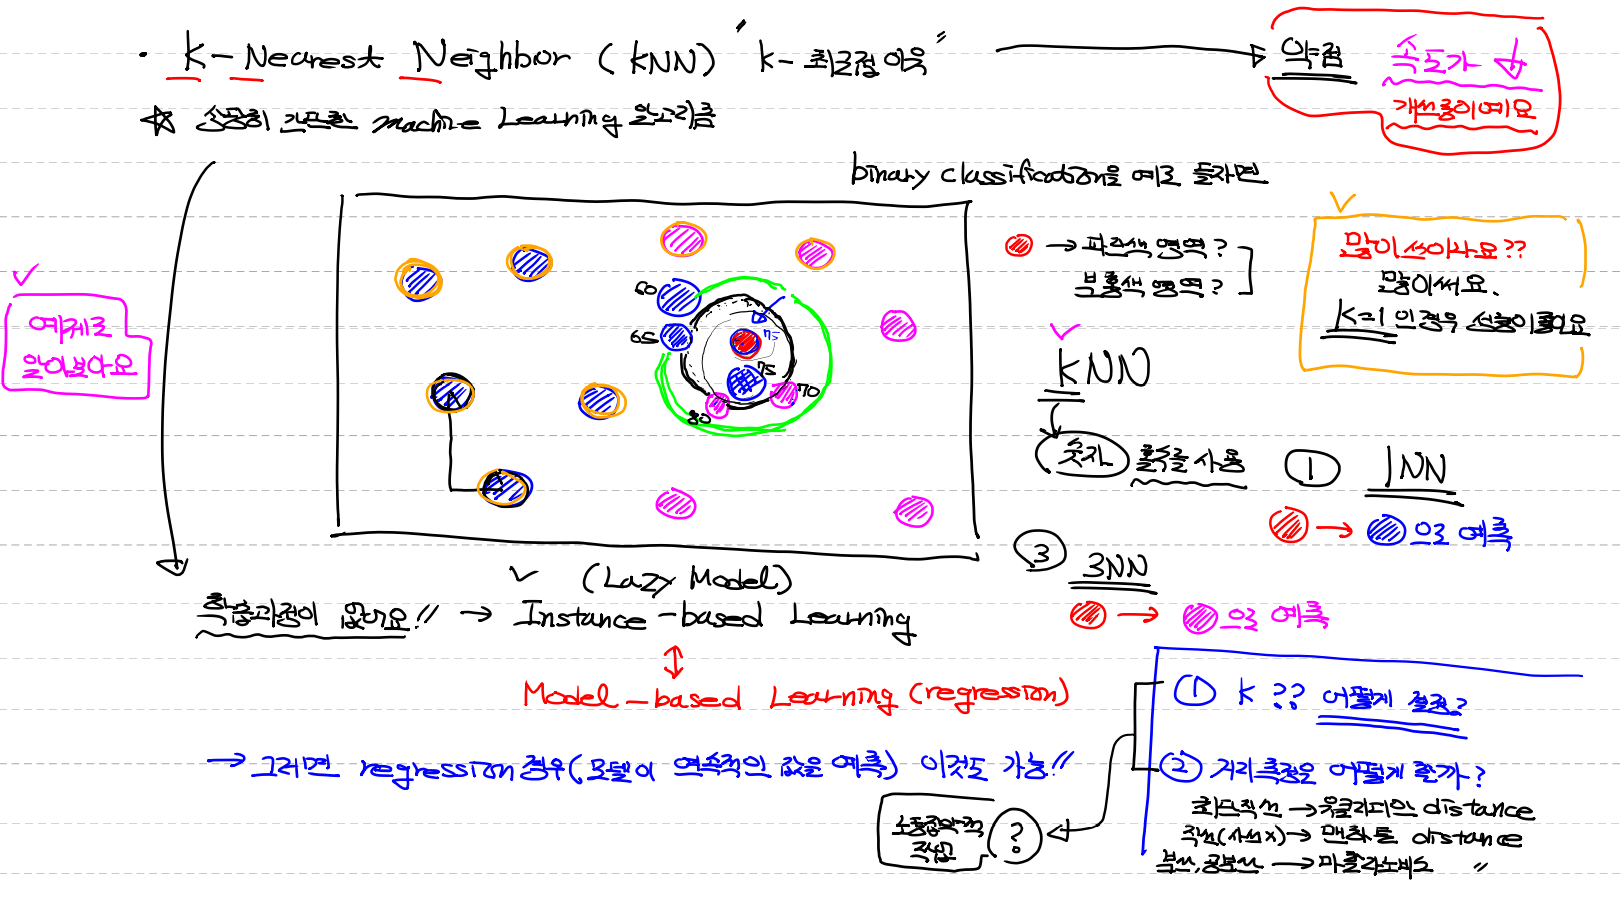 · K-Nearest Neighbor (KNN) "k-최근접 이웃" → 약점 속도가 ↓
개선중이에요
☆ 상당히 간단한 machine Learning 알고리즘
binary classification을 예로 들자면
→ 파란색 영역?
부홍색 영역?
많이쓰이나요??
많이써요.
K=1 인경우 성능이좋아요
예제로
알아보아요
60
65
75
75
70
80
kNN
숫자 홀수를 사용
① 1NN
→ 으로 예측
③ 3NN
→ 으로 예측
(Lazy Model)
학습과정이 없어요!! → Instance-based Learning
↕
Model-based Learning (regression)
→ 그러면 regression경우(모델이 연속적인 값을 예측) 이것도 가능!!
① K ?? 어떻게 설정?
② 거리측정은 어떻게 할까?
최단직선 → 유클리디안 distance
직선(사선x) → 맨하튼 distance
분산,공분산 → 마할라노비스 〃
노동집약적
작업
?